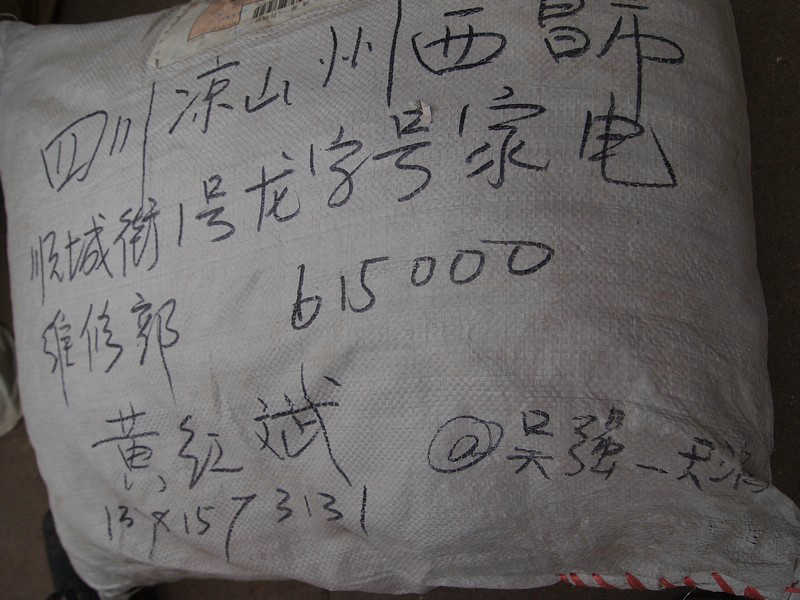 四川凉山州西昌市
顺城街1号龙字号家电
维修部 615000
黄红斌
@吴强一天涯